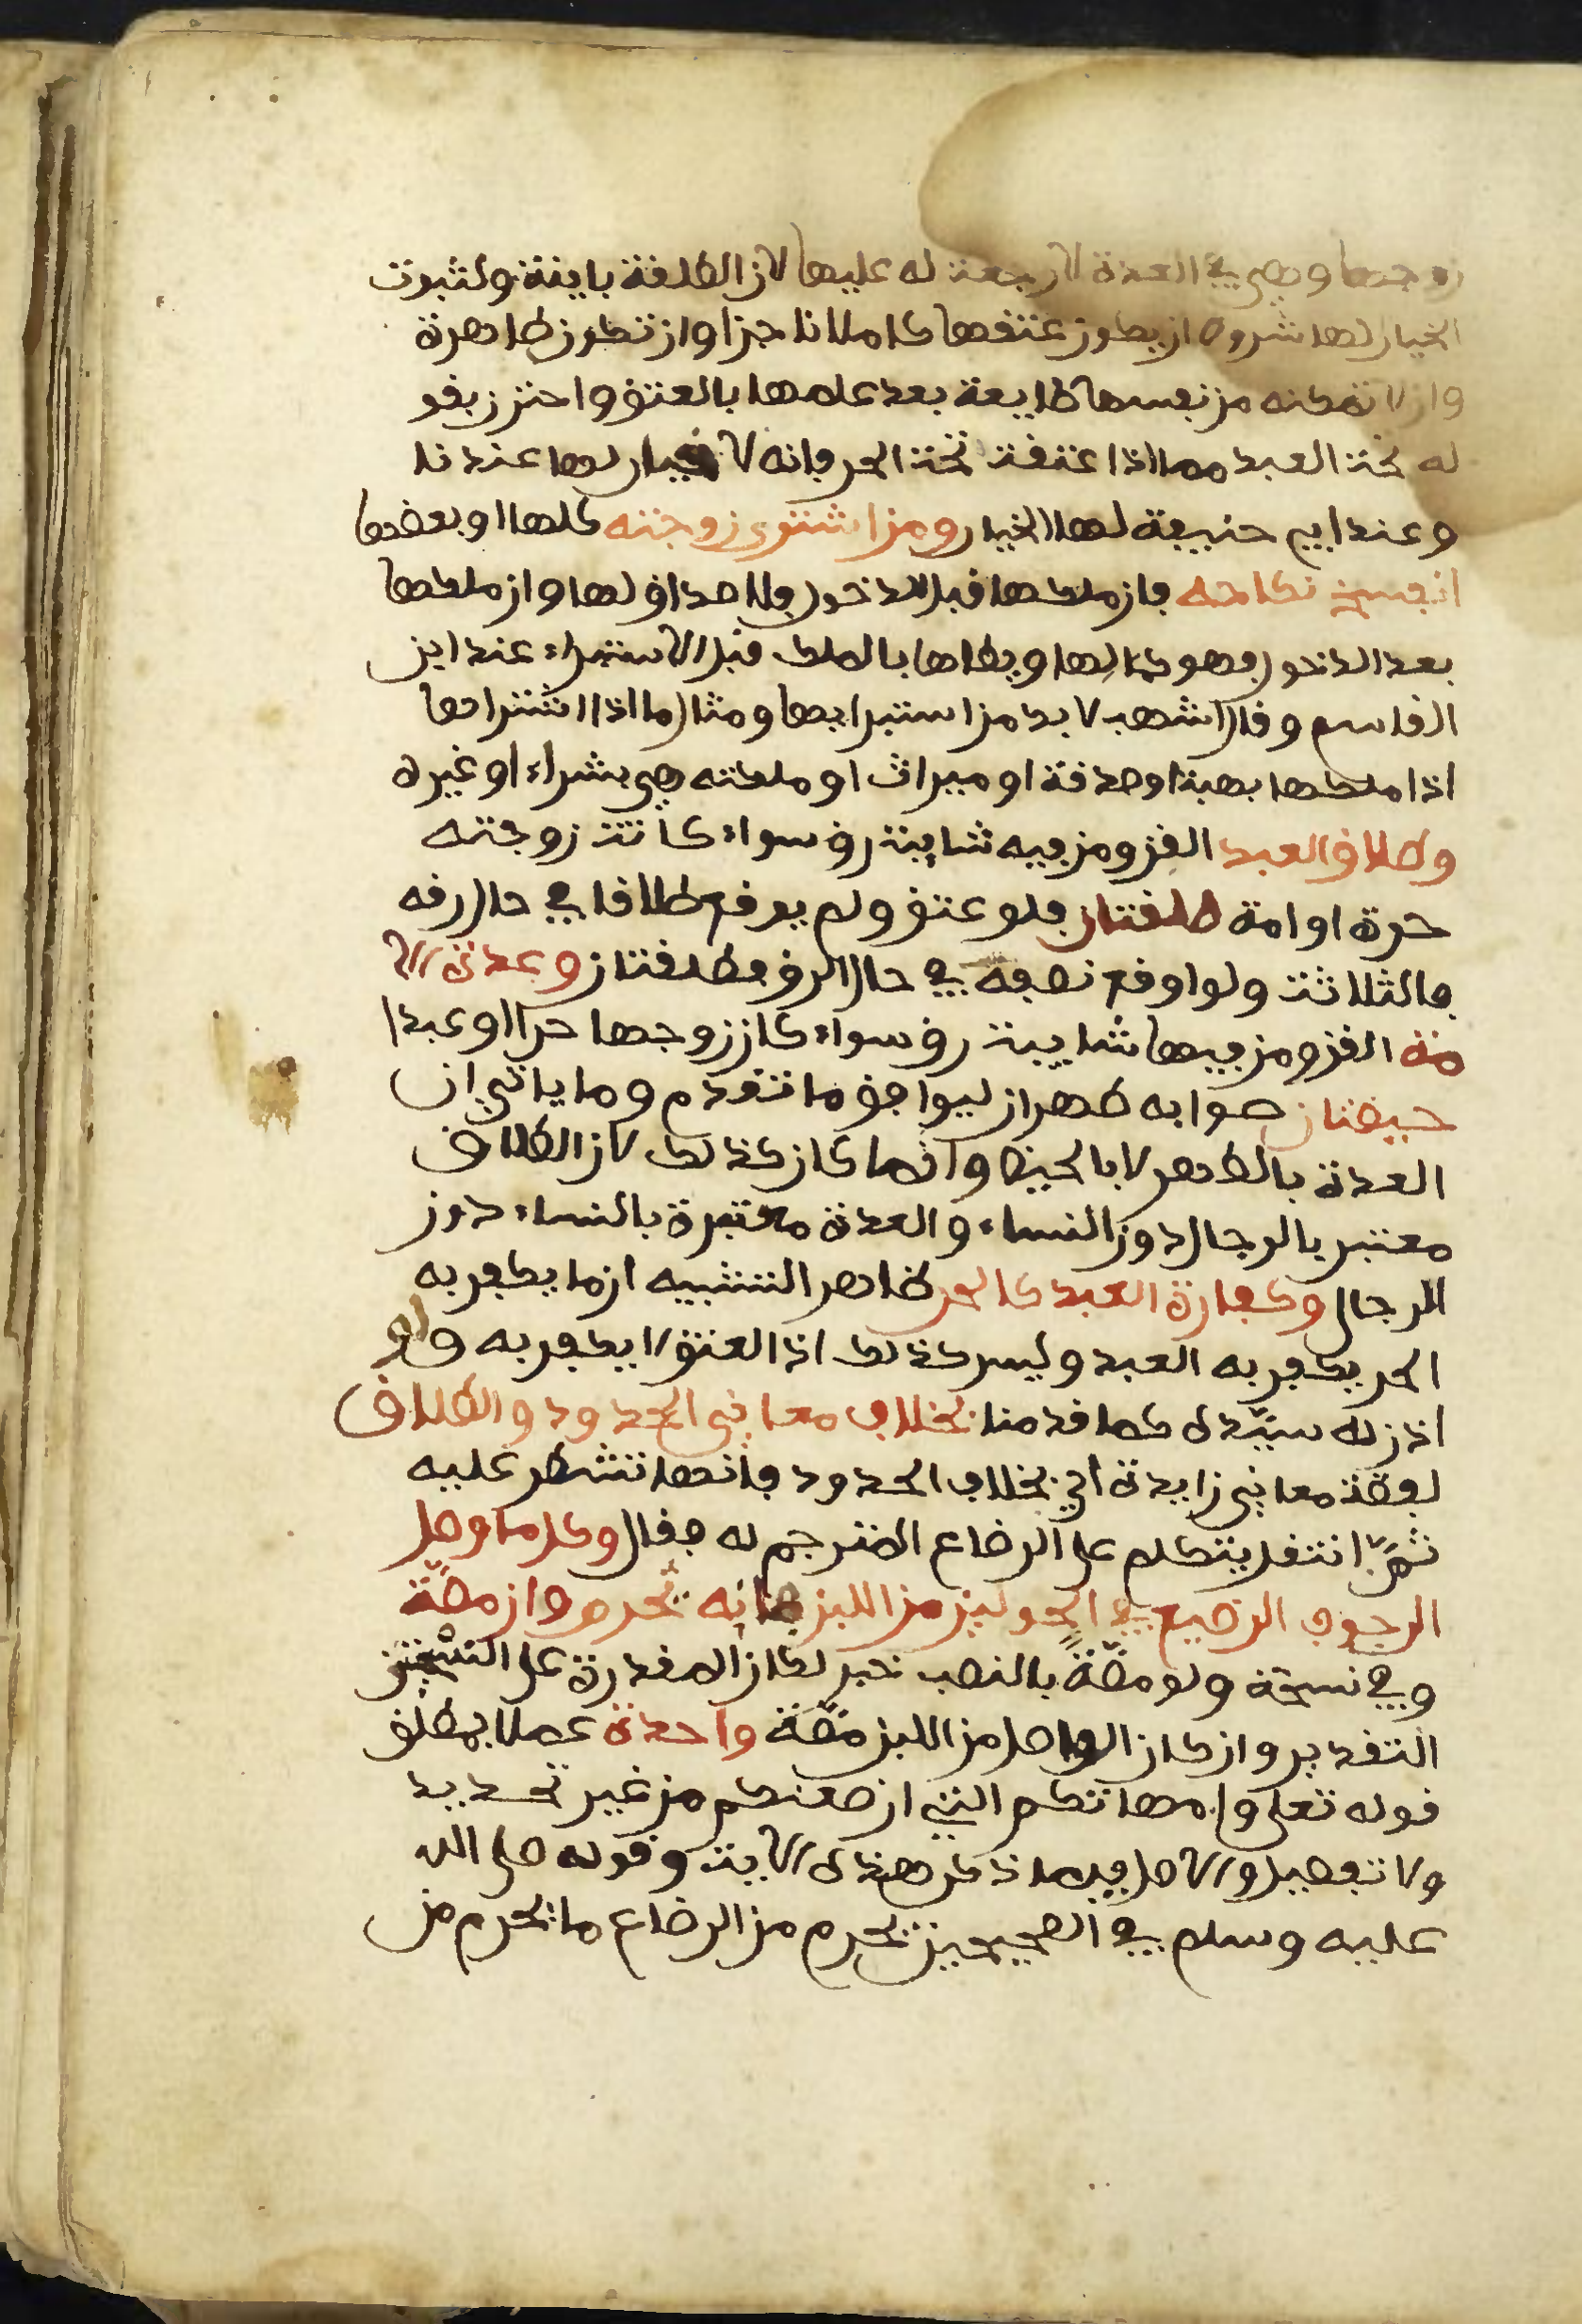 زوجها وهي في العدة لا رجعة له عليها لان الطلقة باينة ولثبوت
الخيار لها شروط ان يكون عتقها كاملا ناجزا وان تكون طاهرة
وان لا تمكنه من نفسها طايعة بعد علمها بالعتق واحترز بقو
له تحت العبد مما اذا عتقت تحت الحر فانه لا خيار لها عندنا
وعند ابي حنيفة لها الخيار ومن اشترى زوجته كلها او بعضها
انفسخ نكاحه فان ملكها قبل الدخول فلا صداق لها وان ملكها
بعد الدخول فهو كمالها ويطاها بالملك قبل الاستبراء عند ابن
القاسم وقال اشهب لا بد من استبرايها ومثل ما اذا اشتراها
اذا ملكها بهبة او صدقة او ميراث او ملكته هي بشراء او غيره
وطلاق العبد القن ومن فيه شايبة رق سواء كانت زوجته
حرة او امة طلقتان فلو عتق ولم يوقع طلاقا في حال رقه
فالثلاثة ولو اوقع نصفه في حال الرق فطلقتان وعدة الا
مة القن ومن فيها شايبة رق سواء كان زوجها حرا او عبدا
حيضتان صوابه طهران ليوافق ما تقدم وما ياتي ان
العدة بالطهر لا بالحيض وانما كان كذلك لان الطلاق
معتبر بالرجال دون النساء والعدة معتبرة بالنساء دون
الرجال وكفارة العبد كالحر ظاهر التشبيه ان ما يكفر به
الحر يكفر به العبد وليس كذلك اذ العتق لا يكفر به ولو
اذن له سيده كما قدمنا بخلاف معاني الحدود والطلاق
لفظة معاني زايدة اي بخلاف الحدود فانها تشطر عليه
ثم انتقل يتكلم على الرضاع المترجم له فقال وكل ما وصل
الى جوف الرضيع في الحولين من اللبن فانه يحرم وان مصة
وفي نسخة ولو مصةً بالنصب خبر لكان المقدرة على النسختين
التقدير وان كان الواصل من اللبن مصة واحدة عملا بمطلق
قوله تعلى وامهاتكم التي ارضعنكم من غير تحديد
ولا تفصيل والاصل فيما ذكر هذه الاية وقوله صلى الله
عليه وسلم في الصحيحين يحرم من الرضاع ما يحرم من